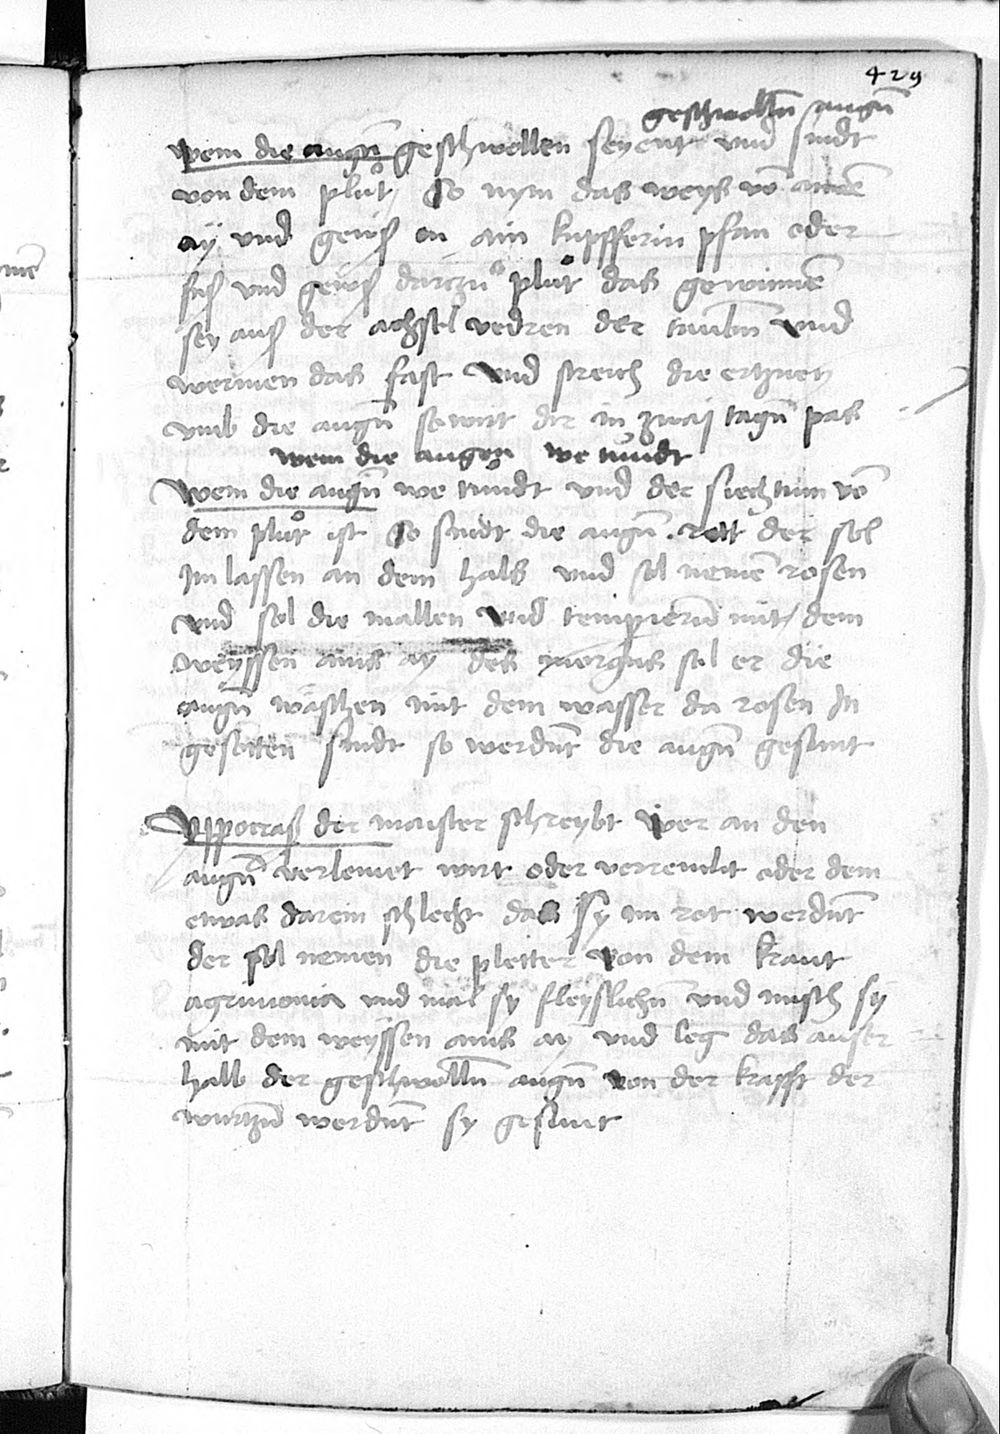 429
geschwolln̄ augn̄
Wem die augn̄ geschwollen seyent vnd sindt
von dem plůt / So nym das weys vō ainē
ay vnd gews in ain kupfferin pfan oder
vas vnd gews darczů plůt das gewunnē
sey aus der achssel vedren der taubn̄ vnd
wermen das fast vnd streich die ertzney
vmb die augn̄ so wirt dir in zwai tagn̄ pas
wem die augen we tundt
Wem die augn̄ we tundt vnd der siechtum vō
dem plůt ist So sindt die augn̄ rott der sol
Im lassen an dem hals vnd sol nemē rosen
vnd sol die mallen vnd temperiern̄ mit dem
weyssen ains ay des morgens sol er die
augn̄ wäschen mit dem wasser da rosen In
gesotten sindt so werdn̄t die augn̄ gesunt
Yppocras der maister schreybt wer an den
augn̄ verlemet wirt oder verrenckt oder dem
etwas darein schlecht das sy im rot werdn̄t
der sol nemen die pletter von dem kraut
agrimonia vnd mal sy fleyslichn̄ vnd misch sy
mit dem weyssen ains ay vnd leg das auser
halb der geschwolln̄ augn̄ von der krafft der
wurtzn̄ werdn̄t sy gesunt